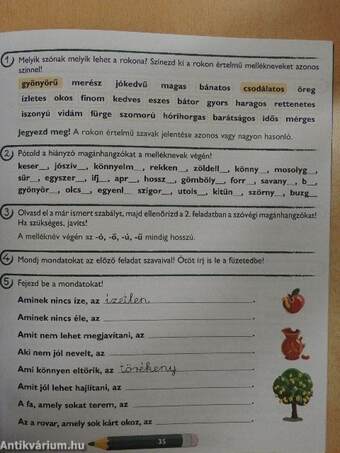 1. Melyik szónak melyik lehet a rokona? Színezd ki a rokon értelmű mellékneveket azonos
színnel!
gyönyörű merész jókedvű magas bánatos csodálatos öreg
ízletes okos finom kedves eszes bátor gyors haragos rettenetes
iszonyú vidám fürge szomorú hórihorgas barátságos idős mérges
Jegyezd meg! A rokon értelmű szavak jelentése azonos vagy nagyon hasonló.
2. Pótold a hiányzó magánhangzókat a melléknevek végén!
keser__, jószív__, könnyelm__, rekken__, zöldell__, könny__, mosolyg__,
sűr__, egyszer__, ifj__, apr__, hossz__, gömböly__, forr__, savany__, b__,
gyönyör__, olcs__, egyenl__ szigor__, utols__, kitűn__, szörny__, buzg__
3. Olvasd el a már ismert szabályt, majd ellenőrizd a 2. feladatban a szóvégi magánhangzókat!
Ha szükséges, javíts!
A melléknév végén az -ó, -ő, -ú, -ű mindig hosszú.
4. Mondj mondatokat az előző feladat szavaival! Ötöt írj is le a füzetedbe!
5. Fejezd be a mondatokat!
Aminek nincs íze, az ízetlen.
Aminek nincs éle, az ______.
Amit nem lehet megjavítani, az ______.
Aki nem jól nevelt, az ______.
Ami könnyen eltörik, az törékeny.
Amit jól lehet hajlítani, az ______.
A fa, amely sokat terem, az ______.
Az a rovar, amely sok kárt okoz, az ______.
35
Antikvárium.hu